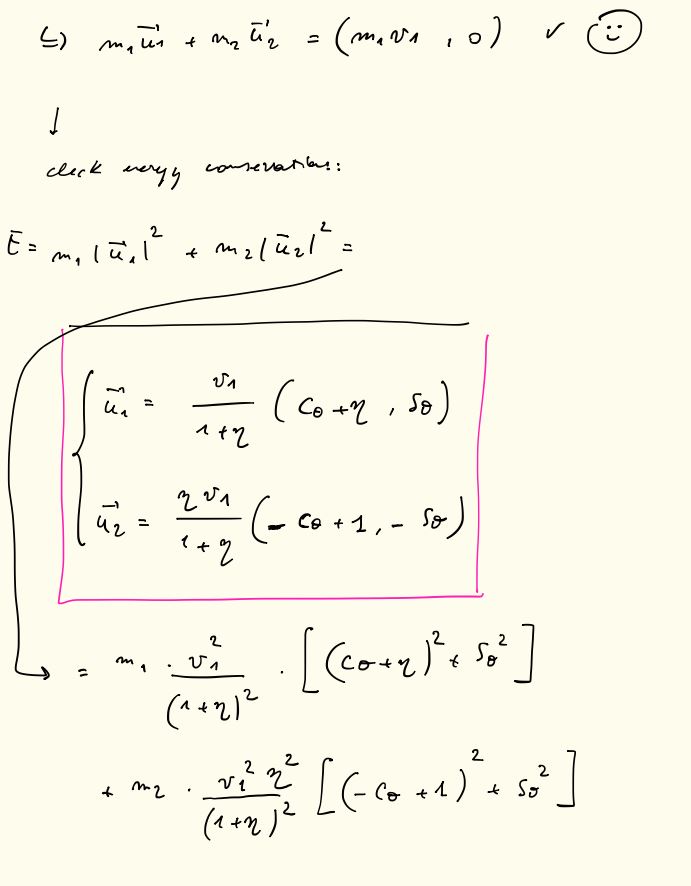 ↳) m₁u⃗₁ + m₂u⃗₂ = (m₁v₁ , 0) ✓ ☺
↓
check energy conservation:
E = m₁|u⃗₁|² + m₂|u⃗₂|² =
{ u⃗₁ = v₁/(1+η) (cθ+η , sθ)
u⃗₂ = ηv₁/(1+η) (-cθ+1, -sθ)
→ = m₁ · v₁²/(1+η)² · [(cθ+η)² + sθ²]
+ m₂ · v₁²η²/(1+η)² [(-cθ+1)² + sθ²]